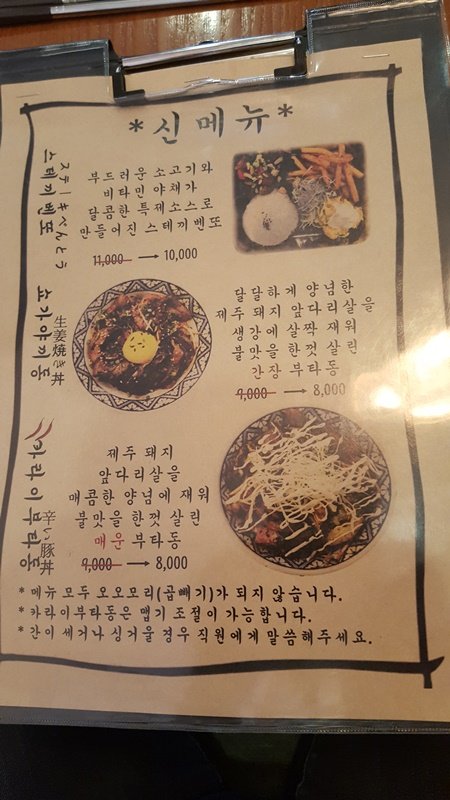 *신메뉴*
스테끼벤또
ステーキべんとう
부드러운 소고기와
비타민 야채가
달콤한 특제소스로
만들어진 스테끼벤또
11,000 → 10,000
쇼가야끼동
生姜焼き丼
달달하게 양념한
제주 돼지 앞다리살을
생강에 살짝 재워
불맛을 한껏 살린
간장 부타동
9,000 → 8,000
카라이부타동
辛い豚丼
제주 돼지
앞다리살을
매콤한 양념에 재워
불맛을 한껏 살린
매운 부타동
9,000 → 8,000
* 메뉴 모두 오오모리(곱빼기)가 되지 않습니다.
* 카라이부타동은 맵기 조절이 가능합니다.
* 간이 세거나 싱거울 경우 직원에게 말씀해주세요.